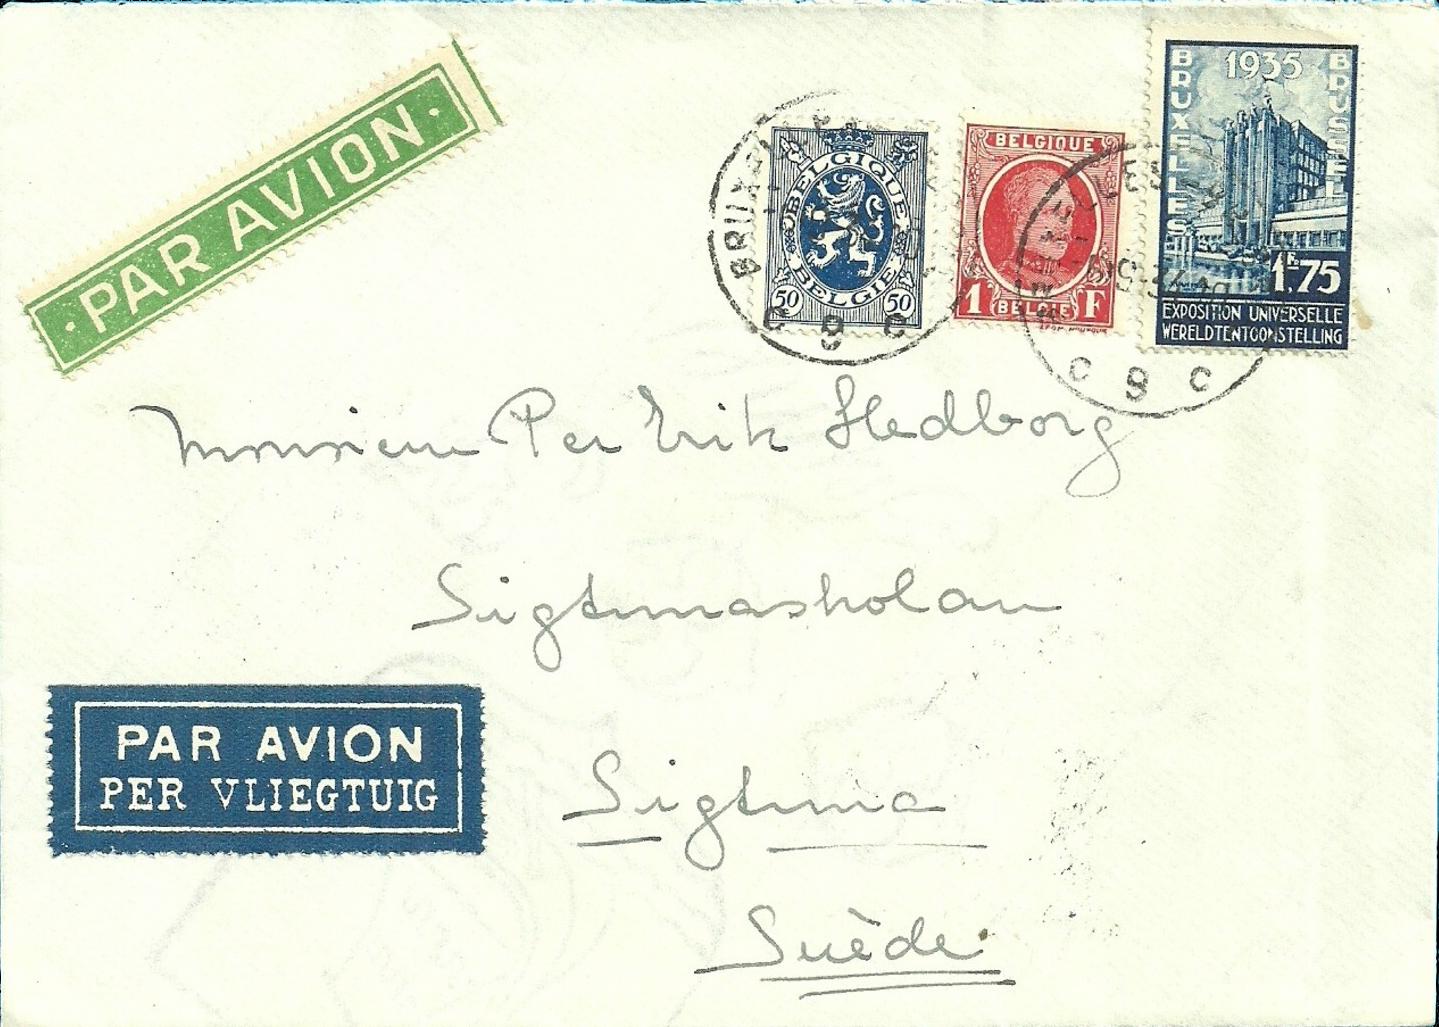 PAR AVION
BELGIQUE
50 50
BELGIE
BELGIQUE
1 F
BELGIE
1935
BRUXELLES
BRUSSEL
1F.75
EXPOSITION UNIVERSELLE
WERELDTENTOONSTELLING
C 9 C
C 9 C
Monsieur Per Erik Hedborg
Sigtunaskolan
PAR AVION
PER VLIEGTUIG
Sigtuna
Suède